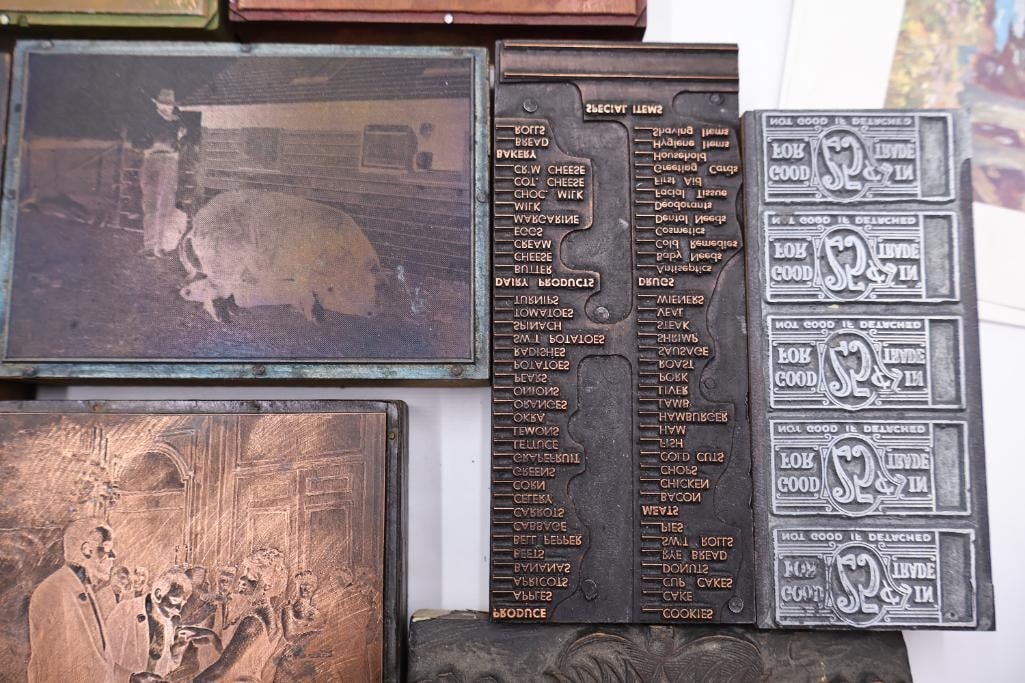 PRODUCE
APPLES
APRICOTS
BANANAS
BEETS
BELL PEPPER
CABBAGE
CARROTS
CELERY
CORN
GREENS
GRAPEFRUIT
LETTUCE
LEMONS
OKRA
ORANGES
ONIONS
PEARS
POTATOES
RADISHES
SW'T POTATOES
SPINACH
TOMATOES
TURNIPS
DAIRY PRODUCTS
BUTTER
CHEESE
CREAM
EGGS
MARGARINE
MILK
CHOC. MILK
COT. CHEESE
CR'M CHEESE
BAKERY
BREAD
ROLLS
COOKIES
CAKE
CUP CAKES
DONUTS
RYE BREAD
SW'T ROLLS
PIES
MEATS
BACON
CHICKEN
CHOPS
COLD CUTS
FISH
HAM
HAMBURGER
LAMB
LIVER
PORK
ROAST
SAUSAGE
SHRIMP
STEAK
VEAL
WIENERS
DRUGS
Antiseptics
Baby Needs
Cold Remedies
Cosmetics
Dental Needs
Deodorants
Facial Tissue
First Aid
Greeting Cards
Household
Hygiene Items
Shaving Items
SPECIAL ITEMS
GOOD 5¢ IN
FOR TRADE
NOT GOOD IF DETACHED
GOOD 5¢ IN
FOR TRADE
NOT GOOD IF DETACHED
GOOD 5¢ IN
FOR TRADE
NOT GOOD IF DETACHED
GOOD 5¢ IN
FOR TRADE
NOT GOOD IF DETACHED
GOOD 5¢ IN
FOR TRADE
NOT GOOD IF DETACHED